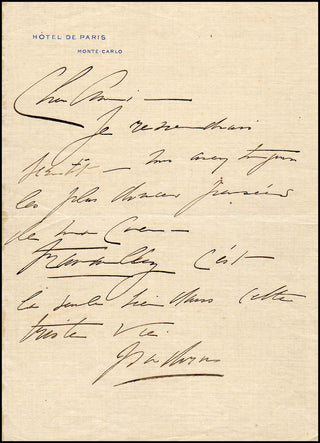 HÔTEL DE PARIS
MONTE-CARLO
Cher Ami —
Je reviendrai
bientôt — vous avez toujours
les plus douces pensées
de mon Coeur —
Travaillez c'est
la seule
triste vie.
Isadora